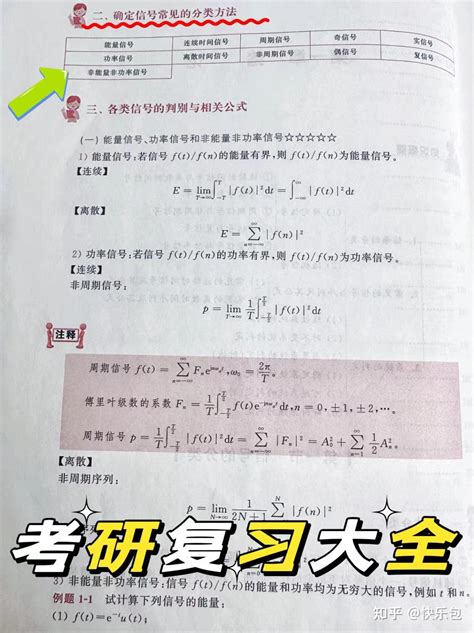 二、确定信号常见的分类方法
能量信号 连续时间信号 周期信号 奇信号 实信号
功率信号 离散时间信号 非周期信号 偶信号 复信号
非能量非功率信号
三、各类信号的判别与相关公式
(一)能量信号、功率信号和非能量非功率信号☆☆☆☆☆
1)能量信号:若信号 f(t)/f(n)的能量有界,则 f(t)/f(n)为能量信号。
【连续】
E = lim_{T→∞} ∫_{-T}^{T} | f(t) |² dt = ∫_{-∞}^{∞} | f(t) |² dt
【离散】
E = ∑_{n=-∞}^{∞} | f(n) |²
2)功率信号:若信号 f(t)/f(n)的功率有界,则 f(t)/f(n)为功率信号。
【连续】
非周期信号:
p = lim_{T→∞} 1/T ∫_{-T/2}^{T/2} | f(t) |² dt
注释
周期信号 f(t) = ∑_{n=-∞}^{∞} Fₙ e^{jnω₀t}, ω₀ = 2π/T。
傅里叶级数的系数 Fₙ = 1/T ∫_{-T/2}^{T/2} f(t)e^{-jnω₀t} dt, n = 0, ±1, ±2, …。
周期信号 p = 1/T ∫_{-T/2}^{T/2} | f(t) |² dt = ∑_{n=-∞}^{∞} | Fₙ |² = A₀² + ∑_{n=1}^{∞} 1/2 Aₙ²。
【离散】
非周期序列:
p = lim_{N→∞} 1/(2N+1) ∑ | f(n) |²
考研复习大全
3)非能量非功率信号:信号 f(t)/f(n)的能量和功率均为无穷大的信号,例如 t 和 n。
例题 1-1 试计算下列信号的能量:
(1) f(t)=e⁻ᵗu(t);
知乎 @快乐包